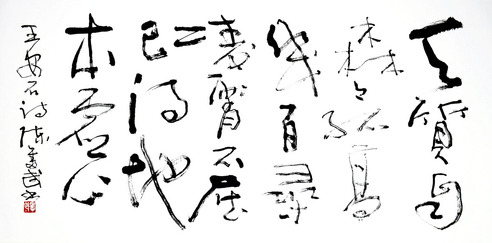 天質自
森々孤高
幾百尋
凌霄不屈
己得地
本虚心
王安石詩陳書